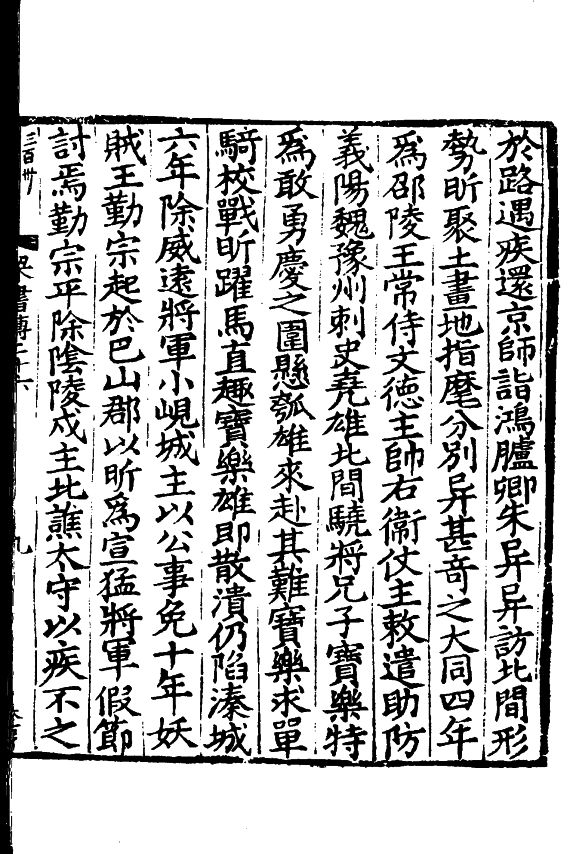 於路遇疾還京師詣鴻臚卿朱异异訪北間形
勢昕聚土畫地指麾分別异甚竒之大同四年
爲邵陵王常侍文德主帥右衞仗主敕遣助防
義陽魏豫州刺史堯雄北間驍將兄子寶樂特
爲敢勇慶之圍懸瓠雄來赴其難寶樂求單
騎校戰昕躍馬直趣寶樂雄即散潰仍陷溱城
六年除威遠將軍小峴城主以公事免十年妖
賊王勤宗起於巴山郡以昕爲宣猛將軍假節
討焉勤宗平除陰陵戍主北譙太守以疾不之
三百卅
梁書傳二十六
九